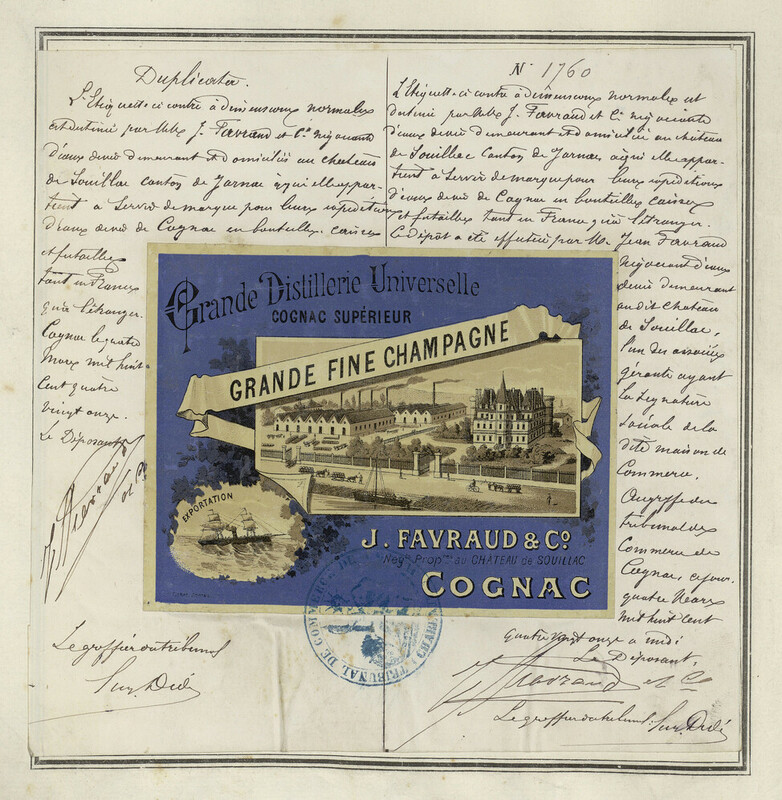 Duplicata.
L'Etiquette ci contre à dimensions normales
est destinée par MM. J. Favraud et Cie négociants
d'eaux de vie demeurant et domiciliés au chateau
de Souillac canton de Jarnac à qui elle appar-
tient à servir de marque pour leurs expéditions
d'eaux de vie de Cognac en bouteilles, caisses
et futailles
tant en France
qu'à l'étranger.
Cognac le quatre
Mars mil huit
cent quatre
vingt onze.
Le Déposant
J. Favraud et Cie
Le greffier du tribunal
N° 1760
L'Etiquette ci contre à dimensions normales est
destinée par MM. J. Favraud et Cie négociants
d'eaux de vie demeurant et domiciliés au château
de Souillac Canton de Jarnac à qui elle appar-
tient à servir de marque pour leurs expéditions
d'eaux de vie de Cognac en bouteilles caisses
et futailles tant en France qu'à l'étranger.
Le dépôt a été effectué par M. Jean Favraud
négociant d'eaux
de vie demeurant
au dit château
de Souillac,
l'un des associés
gérants ayant
la signature
sociale de la
dite maison de
Commerce.
Au greffe du
tribunal de
Commerce de
Cognac, ce jour
quatre Mars
mil huit cent
quatre vingt onze à midi
Le Déposant,
J. Favraud et Cie
Le greffier du tribunal
Grande Distillerie Universelle
COGNAC SUPÉRIEUR
GRANDE FINE CHAMPAGNE
EXPORTATION
J. FAVRAUD & Co
Negts Propres au CHATEAU de SOUILLAC
COGNAC
TRIBUNAL DE COMMERCE